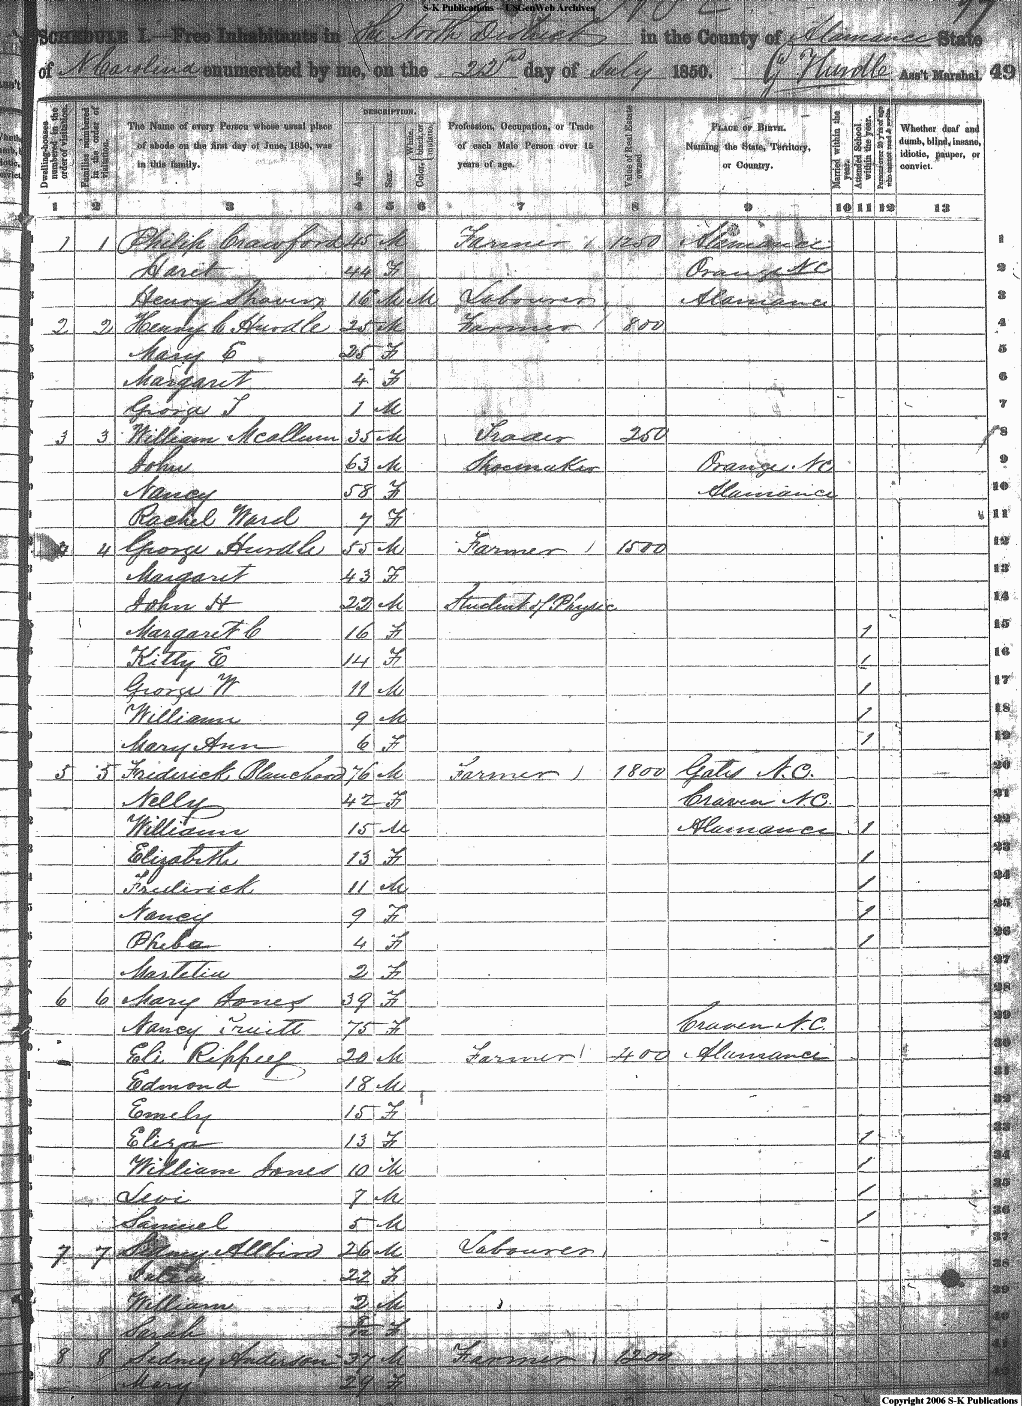 S-K Publications - USGenWeb Archives
SCHEDULE I.—Free Inhabitants in The North District in the County of Alamance State
of N Carolina enumerated by me, on the 22nd day of July 1850. G Hurdle Ass't Marshal. 49
Dwelling-houses numbered in the order of visitation. Families numbered in the order of visitation. The Name of every Person whose usual place of abode on the first day of June, 1850, was in this family. DESCRIPTION. Age. Sex. Color, White, black, or mulatto. Profession, Occupation, or Trade of each Male Person over 15 years of age. Value of Real Estate owned. PLACE OF BIRTH. Naming the State, Territory, or Country. Married within the year. Attended School within the year. Persons over 20 y'rs of age who cannot read & write. Whether deaf and dumb, blind, insane, idiotic, pauper, or convict.
1 2 3 4 5 6 7 8 9 10 11 12 13
1 1 Philip Crawford 45 M Farmer 1250 Alamance 1
44 F Orange NC 2
Henry 16 M M Labourer Alamance 3
2 2 Henry C Hurdle 25 M Farmer 800 4
Mary E 25 F 5
Margaret 4 F 6
George T 1 M 7
3 3 William Mcallum 35 M Trader 250 8
John 63 M Shoemaker Orange NC 9
Nancy 58 F Alamance 10
Rachel Ward 7 F 11
4 George Hurdle 55 M Farmer 1500 12
Margaret 43 F 13
John H 22 M Student of Physic 14
Margaret C 16 F 1 15
Kitty E 14 F 1 16
George W 11 M 1 17
William 9 M 1 18
Mary Ann 6 F 1 19
5 5 Friderick Blanchard 76 M Farmer 1800 Gates N.C. 20
Nelly 42 F Craven N.C. 21
William 15 M Alamance 1 22
Elizabeth 13 F 1 23
Frederick 11 M 1 24
Nancy 9 F 1 25
Pheba 4 F 1 26
2 F 27
6 6 Mary Jones 39 F 28
Nancy Truitt 75 F Craven N.C. 29
Eli Rippey 20 M Farmer 400 Alamance 30
Edmond 18 M 31
Emely 15 F 32
Eliza 13 F 1 33
William Jones 10 M 1 34
Levi 7 M 1 35
Samuel 5 M 1 36
7 7 Sidney Allbird 26 M Labourer 37
22 F 38
William 2 M 39
Sarah F
8 8 Sidney Anderson 37 M Farmer 1200 41
Mary 29 F
Copyright 2006 S-K Publications